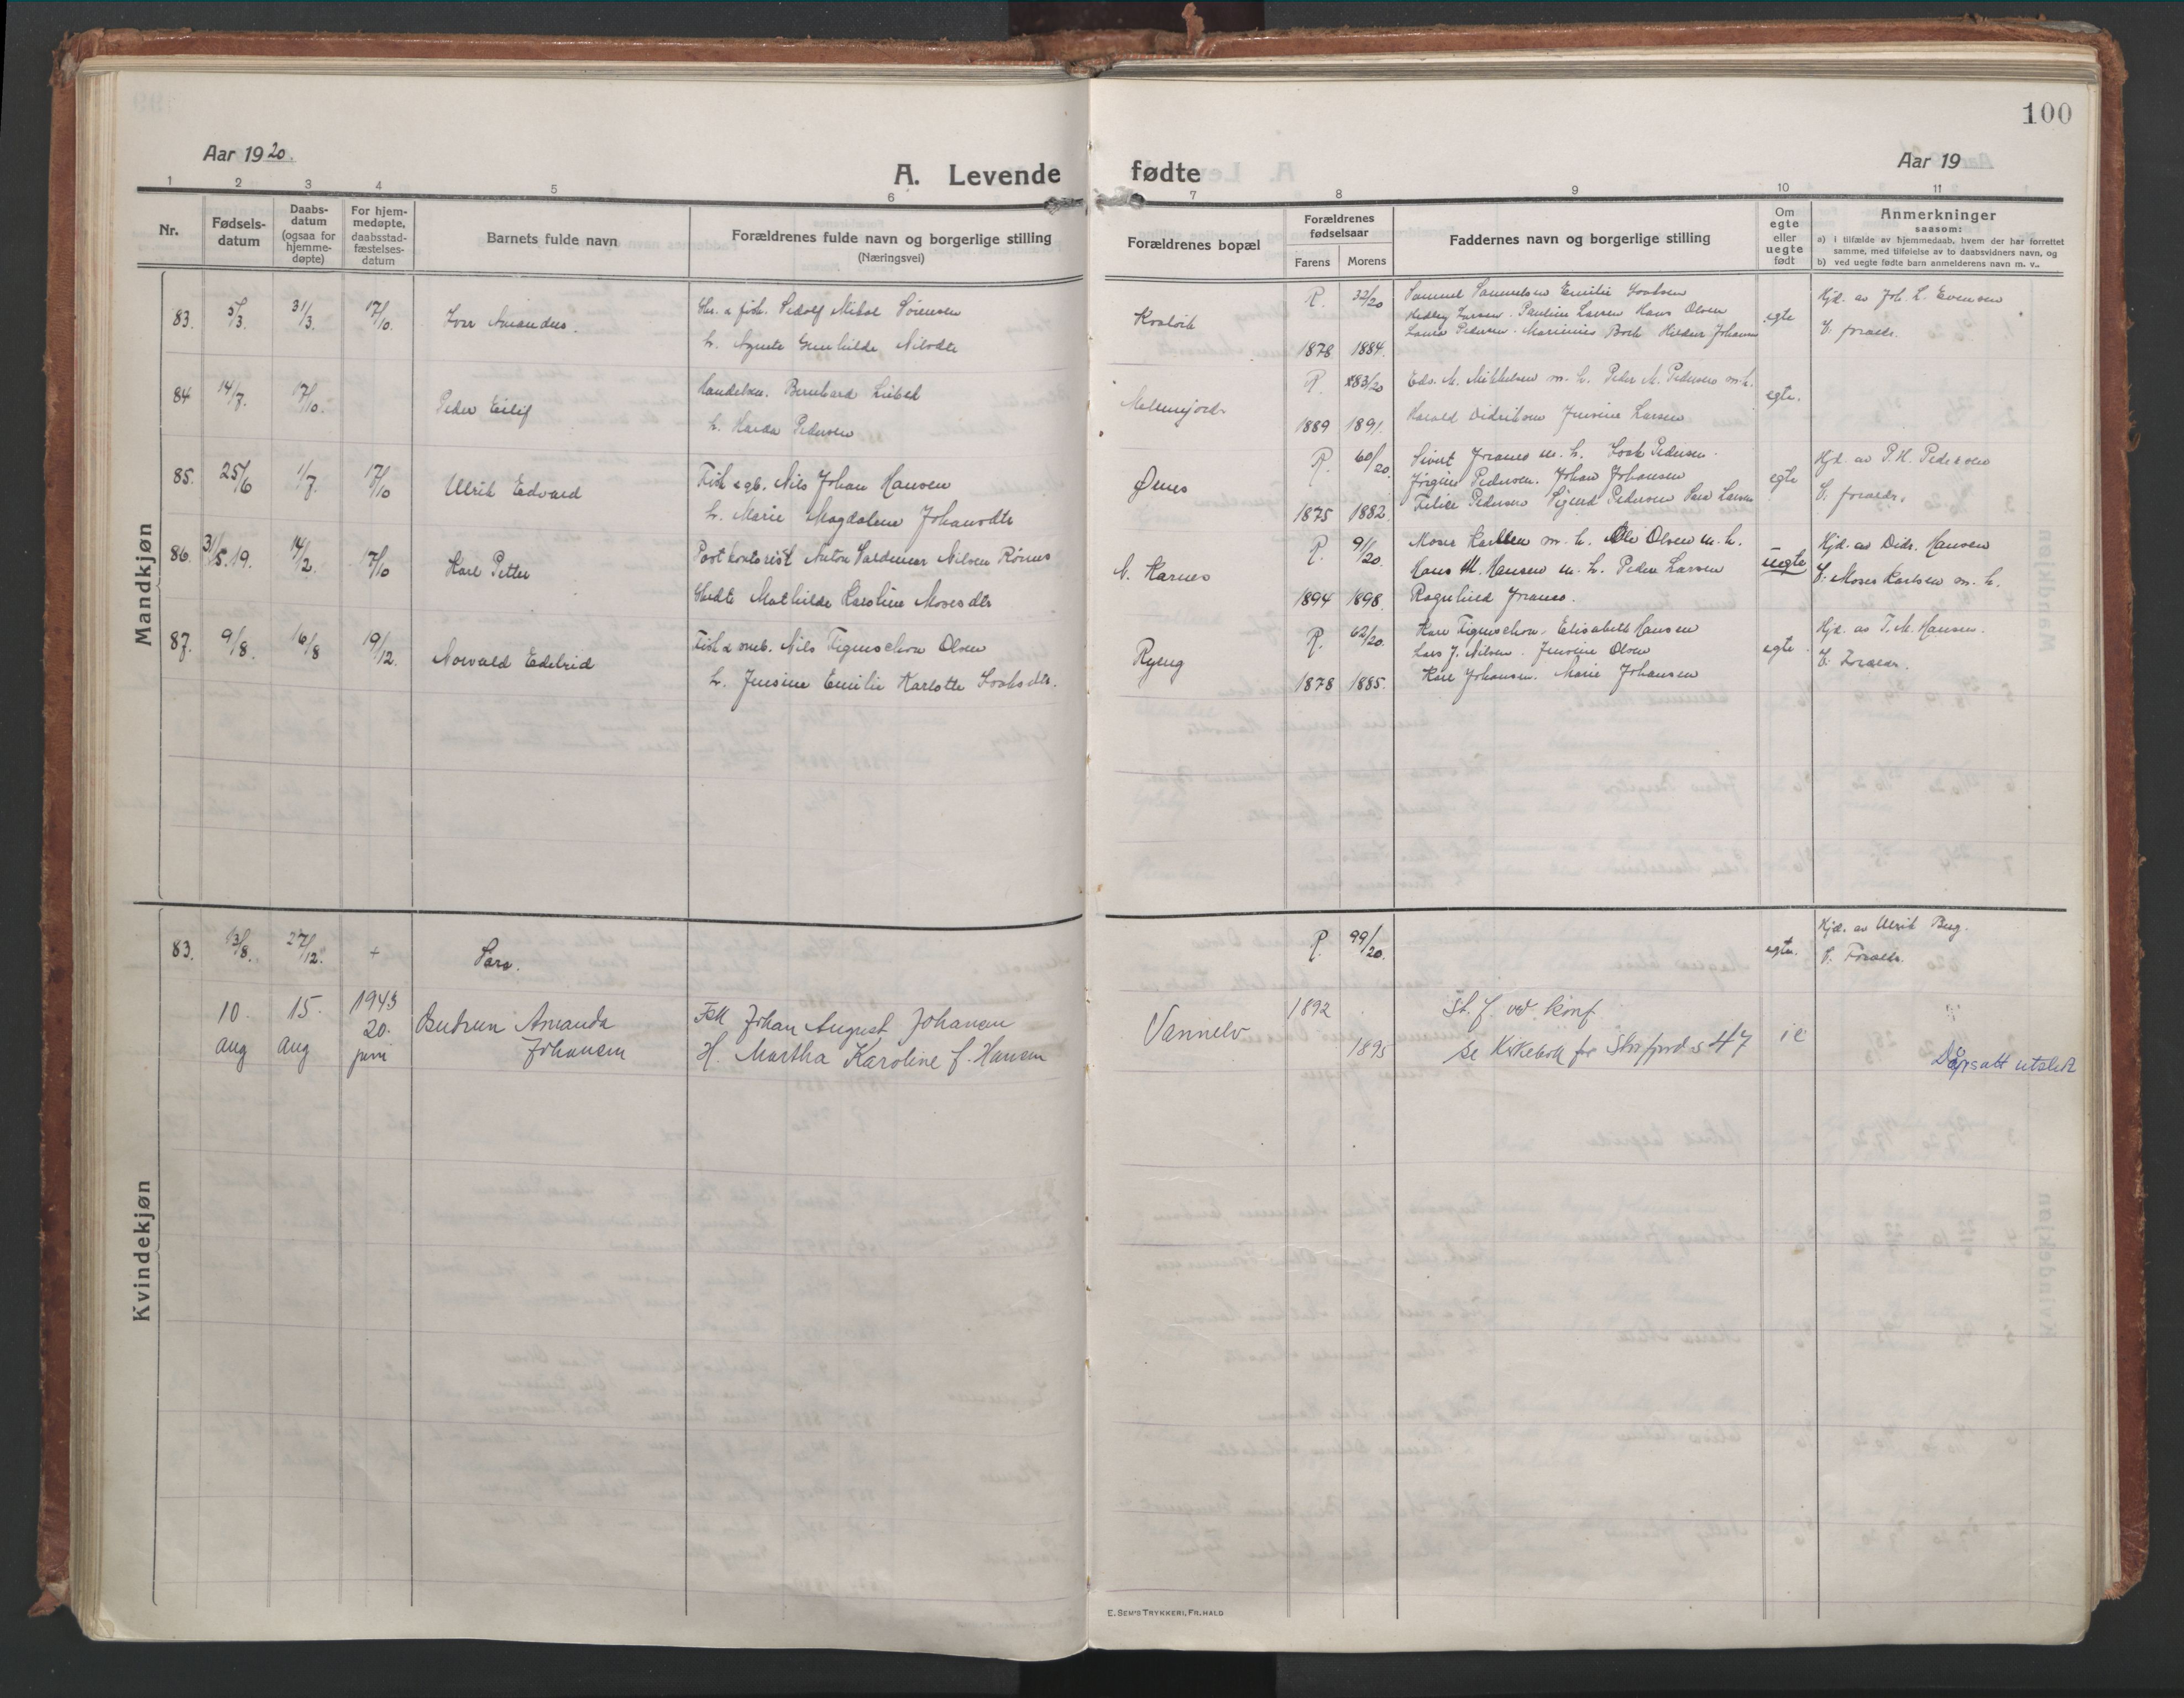 100
Aar 1920.
A. Levende fødte
Aar 19
1 2 3 4 5 6 7 8 9 10 11
Nr.
Fødsels-
datum
Daabs-
datum
(ogsaa for
hjemme-
døpte)
For hjem-
medøpte,
daabsstad-
fæstelses-
datum
Barnets fulde navn
Forældrenes fulde navn og borgerlige stilling
(Næringsvei)
Forældrenes bopæl
Forældrenes
fødselsaar
Farens Morens
Faddernes navn og borgerlige stilling
Om
egte
eller
uegte
født
Anmerkninger
saasom:
a) i tilfælde av hjemmedaab, hvem der har forrettet
samme, med tilføielse av to daabsvidners navn, og
b) ved uegte fødte barn anmelderens navn m. v.
Mandkjøn
83. 5/3. 31/3. 17/10. Iver Amandus.
fisk. Sedolf Mikal Sørensen
h. Agnete Gunhilde Nilsdtr
Kvalvik
R. 32/20
1878 1884.
Samuel Samuelsen Emilie
Hedley Larsen. Pauline Larsen Hans Olsen
Laura Pedersen. Marinius Bork Hildur Johansen
egte
Hjd. av Joh. L. Evensen
V. foraldr.
84 14/7. 17/10. Peder Eilif
Handelsm. Bernhard
h. Pedersen
R. 83/20
1889 1891.
Edv. M. Mikkelsen m. h. Peder M. Pedersen m. h.
Harald Didriksen Jensine Larsen
egte.
85. 25/6 1/7. 17/10 Ulrik Edvard
Fisk & gb. Nils Johan Hansen
h. Marie Magdalene Johansdtr
Ørnes
R. 60/20.
1875 1882
Sivert m. h. Pedersen.
Jørgine Pedersen. Johan Johansen
Pedersen Sigurd Pedersen Sara Larsen
egte
Hjd. av P. H. Pedersen
V. foraldr.
86. 31/5.19. 14/2. 17/10 Karl Petter
Postkontorist Anton Valdemar Nilsen Rørnes
Mathilde Karoline Mosesdtr
N. Karnes
R. 91/20.
1894 1898.
Moses Karlsen m. h. Ole Olsen m. h.
Hans M. Hansen m. h. Peder Larsen
Ragnhild
uegte
Hjd. av Didr. Hansen
V. Moses Karlsen m. h.
87. 9/8. 16/8 19/12. Norvald Edelrid
Fisk & Nils Figenschou Olsen
h. Jensine Emilie Karlotte
R. 62/20.
1878 1885.
Figenschou. Elisabeth Hansen
Lars J. Nilsen. Jensine Olsen
Karl Johansen. Marie Johansen
egte
Hjd. av T. M. Hansen.
V. Foraldr.
Kvindekjøn
83. 13/8. 27/12. + Sara.
R. 99/20.
egte.
Hjd. av Ulrik Berg.
V. Foraldr.
10. aug
15. aug
1943
20.
juni
Gudrun Amanda
Johansen
Fisk Johan August Johansen
H. Martha Karoline f. Hansen
Vannelv
1892
1895
St. f. ved konf.
Se Kirkebok for Storfjord s 47
ie
Dåpsatt utstedt
E. SEM'S TRYKKERI, FR. HALD